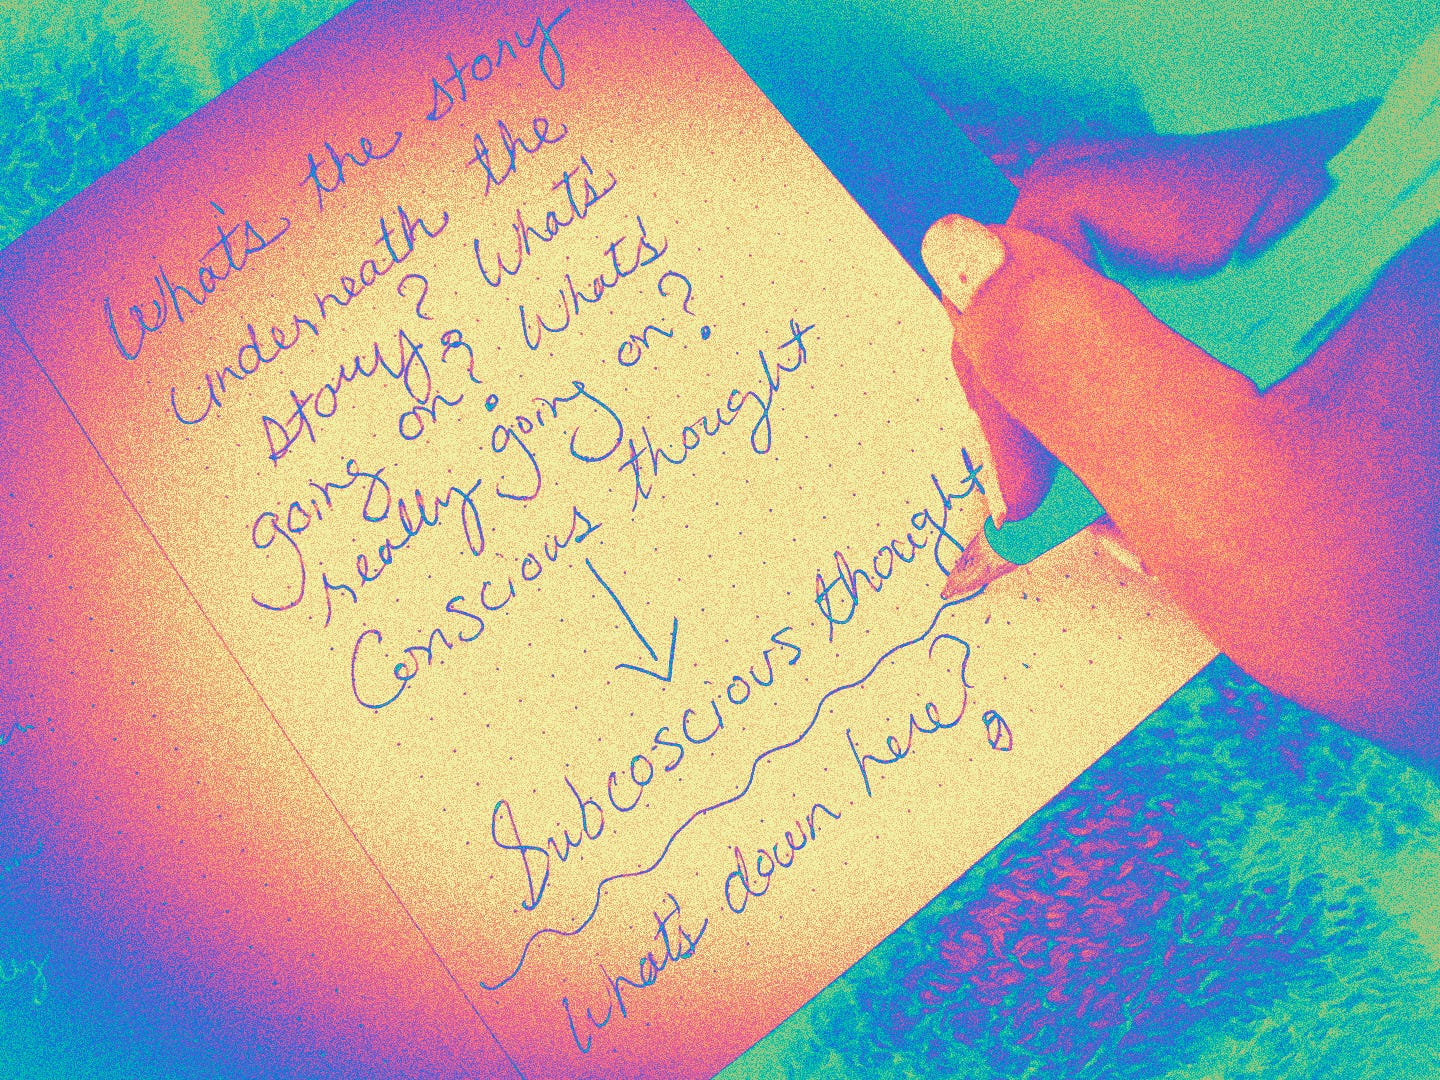 What's the story
underneath the
story? What's
going on? What's
really going on?
Conscious thought
Subcoscious thought
What's down here?